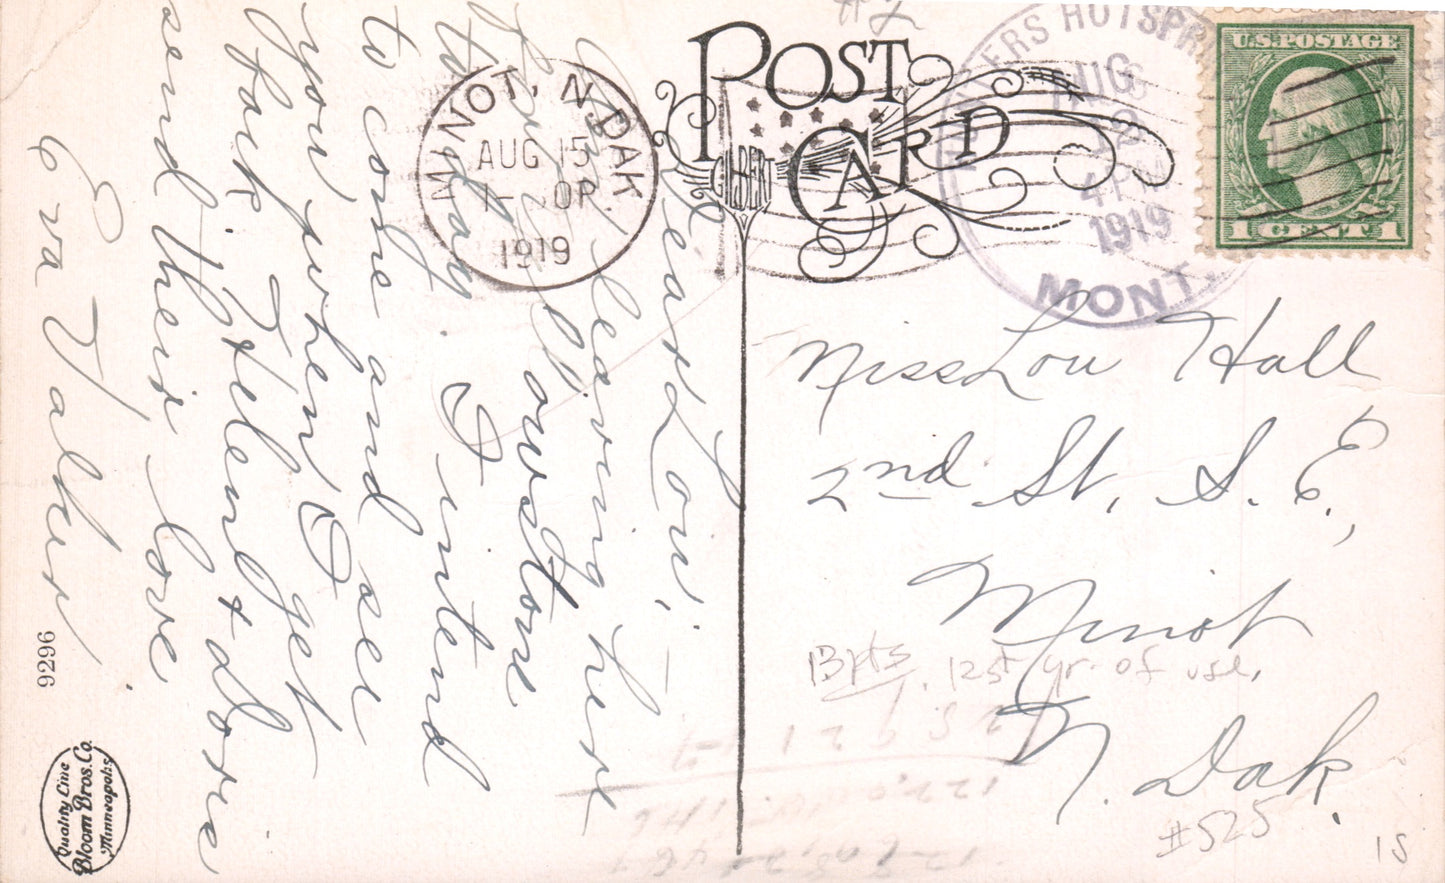 POST CARD
GILBERT
U.S. POSTAGE
1 CENT 1
HUNTERS HOTSPR
AUG
12
4 PM
1919
MONT.
MINOT, N. DAK
AUG 15
1919
Dear Lou; -
Am leaving here
to day. I intend
to come and see
you when I get
back. Helen & Doris
send their love
Eva Walker
Miss Lou Hall
2nd St. S. E.,
Minot
N. Dak.
1st yr. of use.
#525
15
9296
Quality Line
Bloom Bros. Co.
Minneapolis